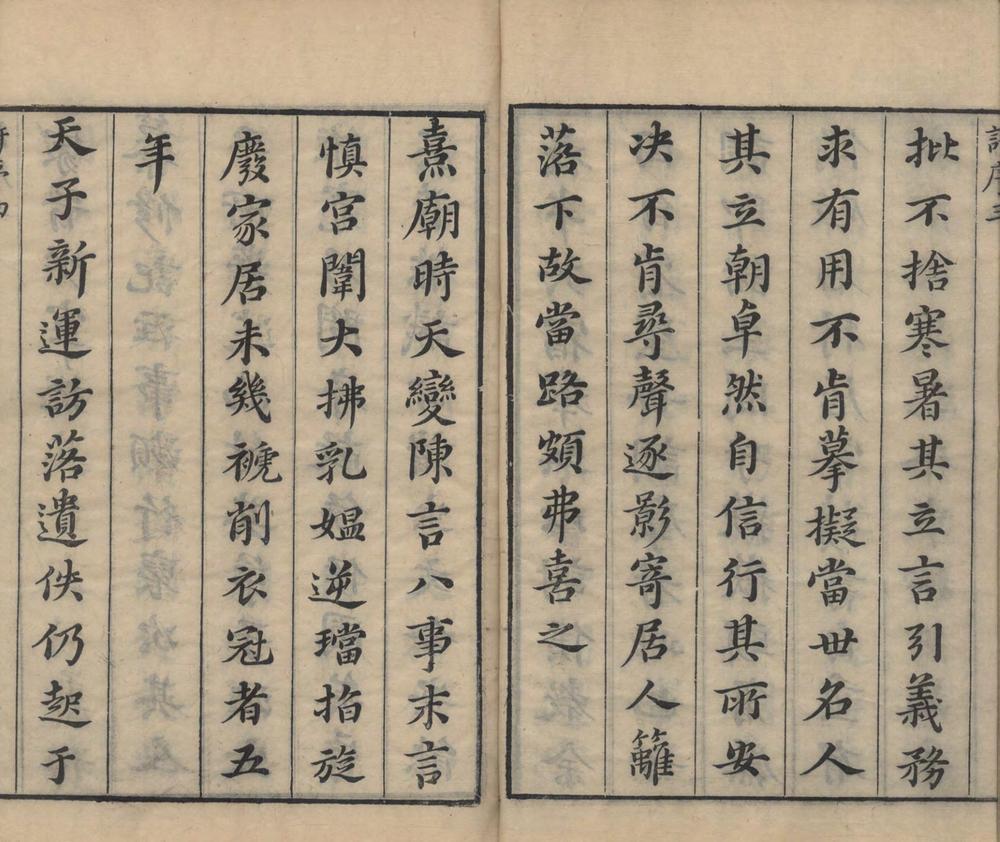 批不捨寒暑其立言引義務
求有用不肯摹擬當世名人
其立朝卓然自信行其所安
决不肯尋聲逐影寄居人籬
落下故當路頗弗喜之
熹廟時天變陳言八事末言
慎宮闈大拂乳媼逆璫指旋
廢家居未幾褫削衣冠者五
年
天子新運訪落遺佚仍起于